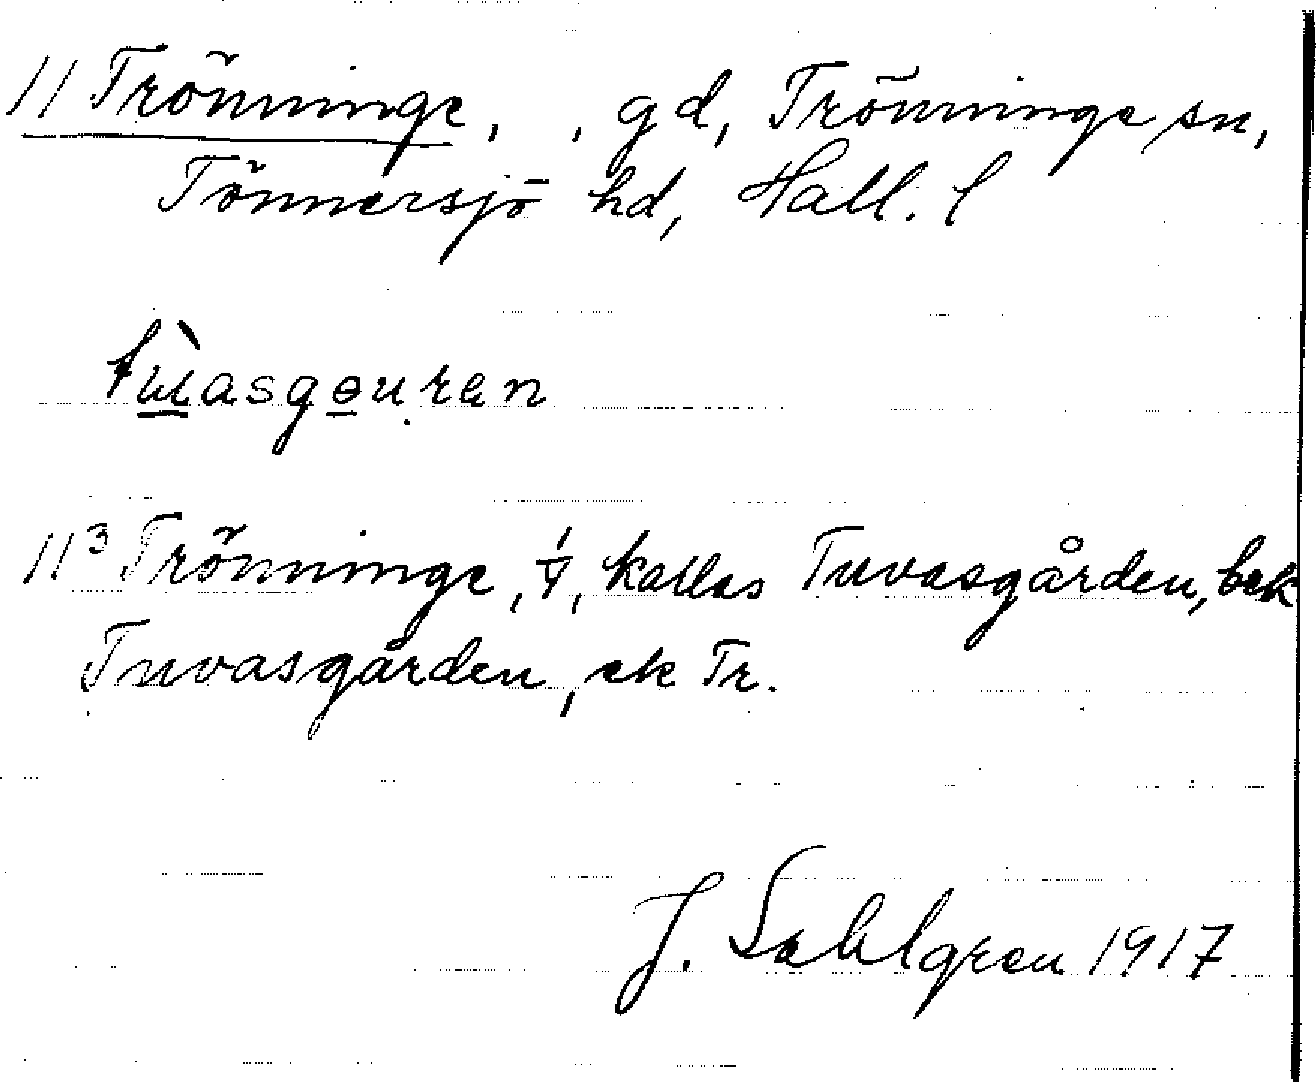 11 Trönninge, , gd, Trönninge sn,
Tönnersjö hd, Hall. l
11³ Trönninge, , kallas Tuvasgården, bek
Tuvasgården, ek Tr.
J. Sahlgren 1917